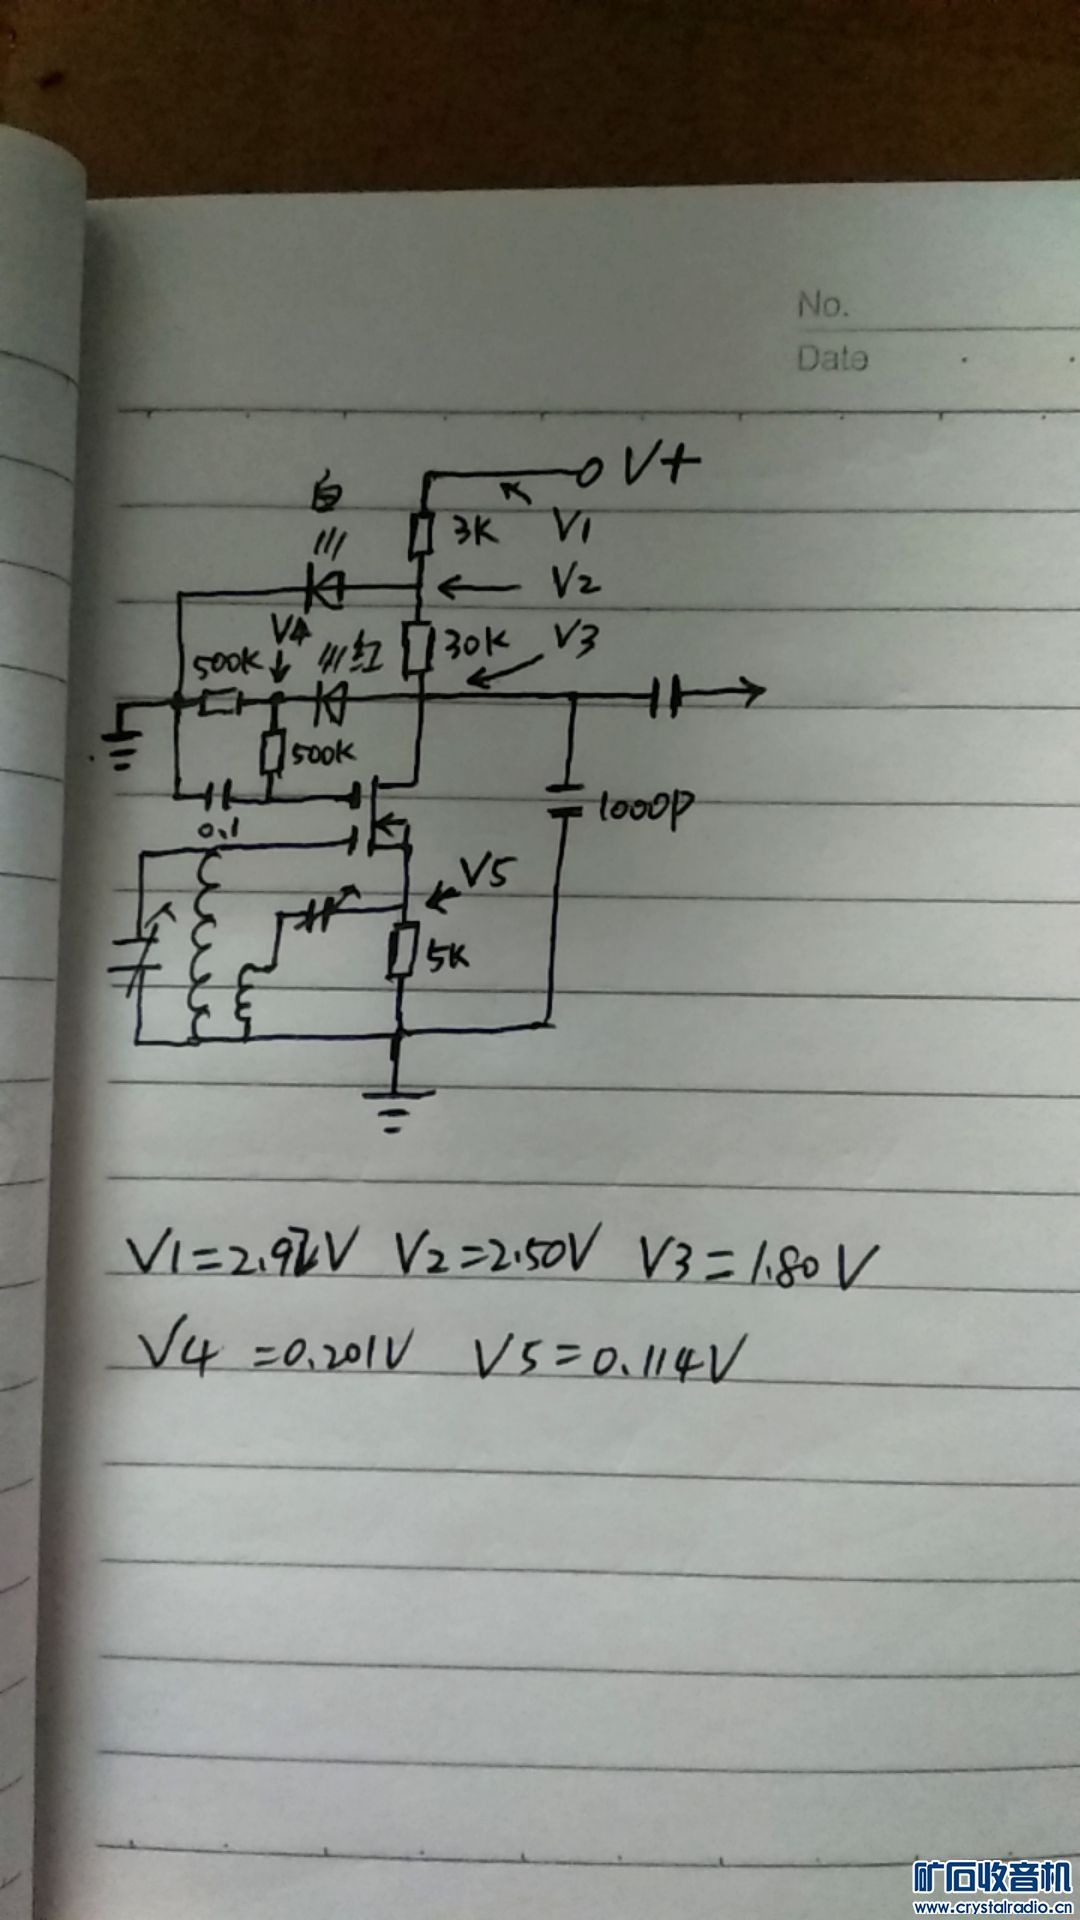 No.
Date
V+
白
3K V1
V2
V4
500K 红 30K V3
500K
0.1
1000P
V5
5K
V2=2.50V V3=1.80V
V4=0.201V V5=0.114V
矿石收音机
www.crystalradio.cn